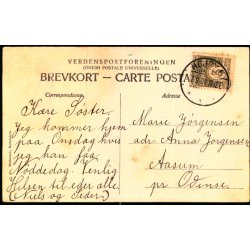 VERDENSPOSTFORENINGEN
(UNION POSTALE UNIVERSELLE)
BREVKORT – CARTE POSTALE
Correspondance
Adresse
Kære Søster
Jeg kommer hjem
paa Onsdag hvis
jeg kan faa
Nøddedag. Venlig
Hilsen til eder alle
(Niels og Peder)
Marie Jørgensen
adr Anna Jørgensen
Aasum
pr Odense.